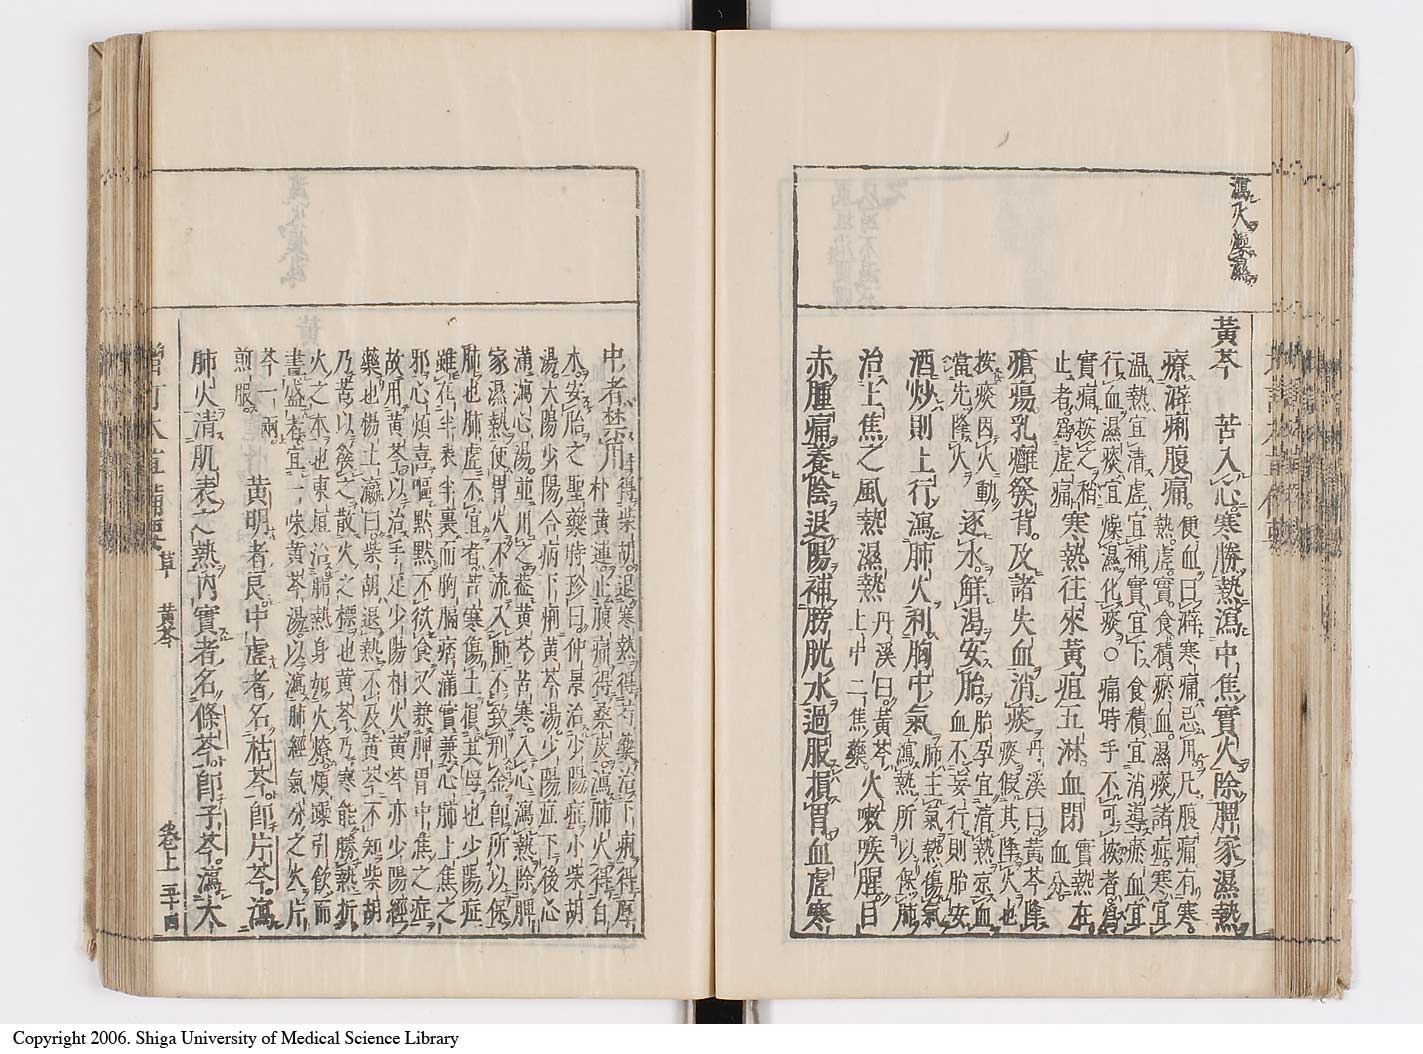 瀉火燥濕
黃芩　苦入心寒勝熱瀉中焦實火除脾家濕熱
療澼痢腹痛
便血曰澼寒痛忌用凡腹痛有寒
熱虛實食積瘀血濕痰諸症寒宜
溫熱宜清虛宜補實宜下食積宜消導瘀血宜
行血濕痰宜燥濕化痰○痛時手不可按者爲
實痛按之稍止者爲虛痛
寒熱往來黃疸五淋血閉
實熱在血分
瘡瘍乳癰發背及諸失血消痰
丹溪曰黃芩降痰假其降火也
按痰因火動當先降火
逐水解渴安胎
胎孕宜清熱涼血血不妄行則胎安
酒炒則上行瀉肺火利胸中氣
肺主氣熱傷氣瀉熱所以保肺
治上焦之風熱濕熱
丹溪曰黃芩上中二焦藥
火嗽喉腥目
赤腫痛養陰退陽補膀胱水過服損胃血虛寒
中者禁用
得柴胡退寒熱得芍藥治下痢得厚
朴黃連止腹痛得桑皮瀉肺火得白
朮安胎之聖藥時珍曰仲景治少陽症小柴胡
湯大陽少陽合病下痢黃芩湯少陽症下後心
滿瀉心湯並用之蓋黃芩苦寒入心瀉熱除脾
家濕熱使胃火不流入肺不致刑金卽所以保
肺也肺虛不宜者苦寒傷土損其母也少陽症
雖在半表半裏而胸膈痞滿實兼心肺上焦之
邪心煩喜嘔默默不欲食又兼脾胃中焦之症
故用黃芩以治手足少陽相火黃芩亦少陽經
藥也楊士瀛曰柴胡退熱不及黃芩不知柴胡
乃苦以發之散火之標也黃芩乃寒能勝熱折
火之本也東垣治肺熱身如火燎煩躁引飲而
晝盛者宜一味黃芩湯以瀉肺經氣分之火片
芩一兩煎服
黃明者良中虛者名枯芩卽片芩瀉
肺火清肌表之熱內實者名條芩卽子芩瀉大
草　黃芩
卷上　五十四